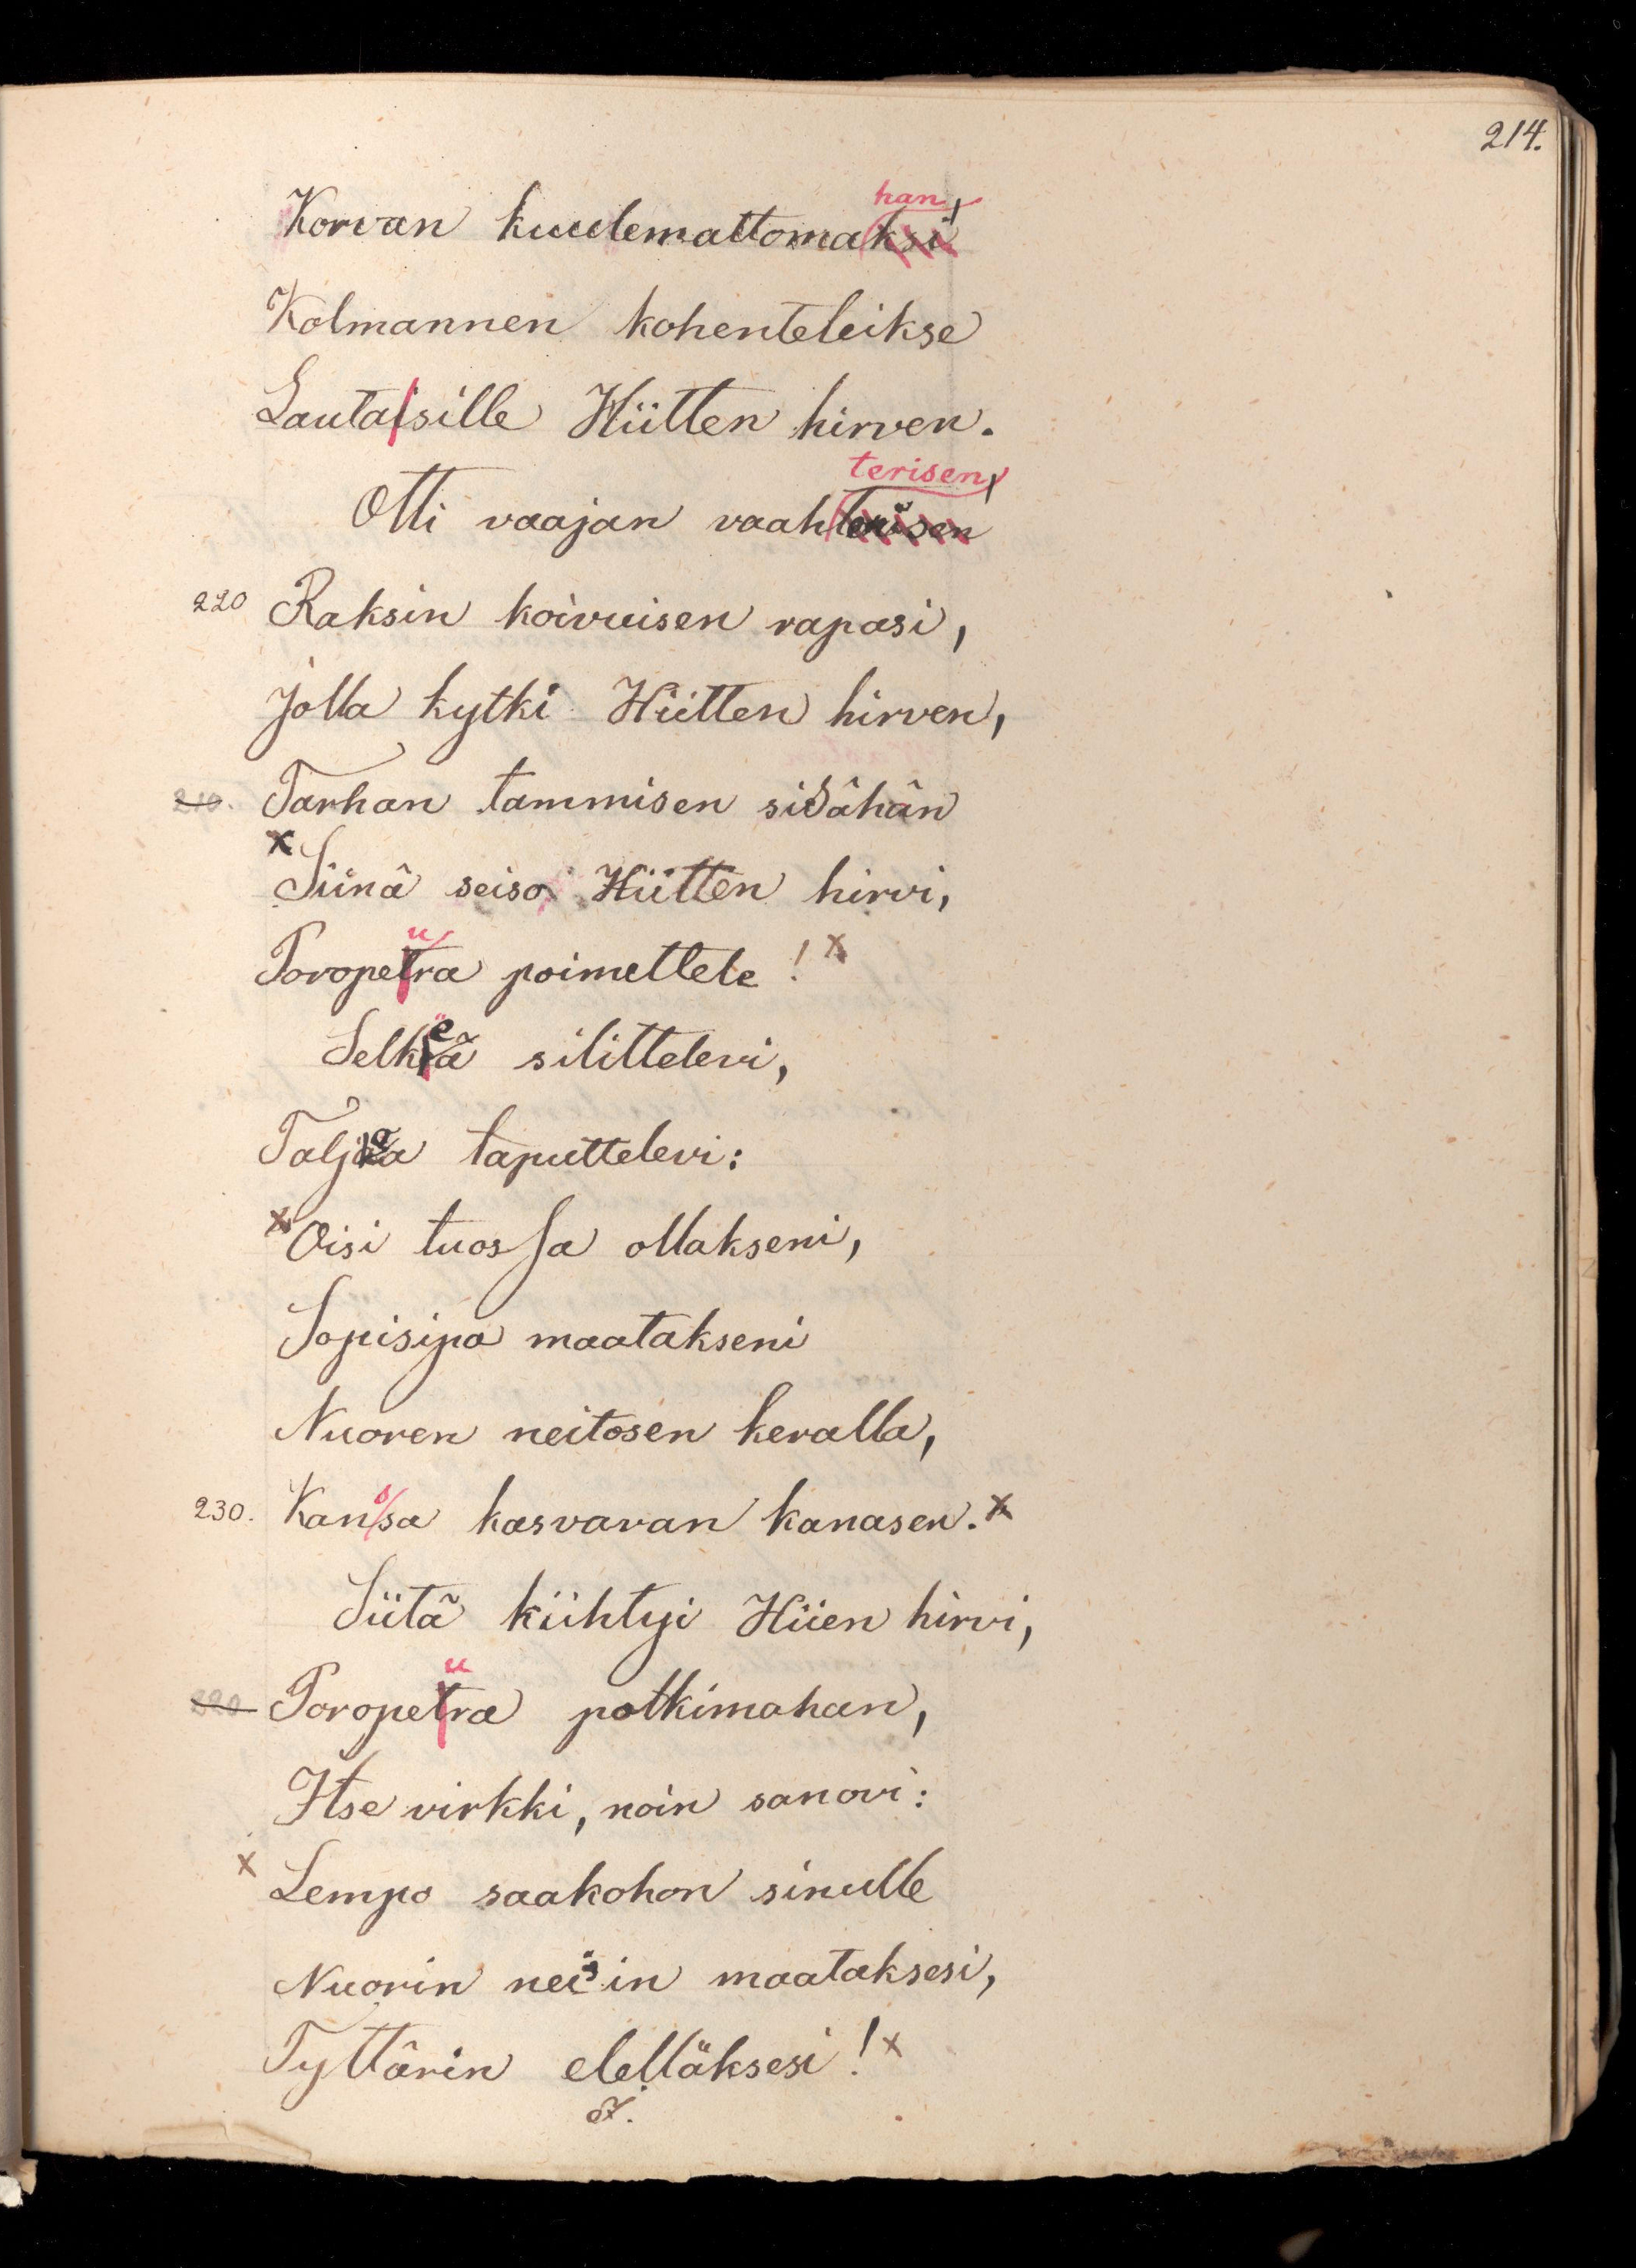 214.
han
Korvan kuulemattomaksi
Kolmannen kohenteleikse
Lautasille Hiitten hirven.
terisen
Otti vaajan vaahterisen
220 Raksin koivuisen rapasi,
Jolla kytki Hiitten hirven,
210. Tarhan tammisen sisähän
x Siinä seiso Hiitten hirvi,
u
Poropetra poimettele! x
Selkeä silittelevi,
Taljoa taputtelevi:
x Oisi tuossa ollakseni,
Sopisipa maatakseni
Nuoren neitosen keralla,
s
230. Kansa kasvavan kanasen. x
Siitä kiihtyi Hiien hirvi,
u
220 Poropetra potkimahan,
Itse virkki, noin sanovi:
x Lempo saakohon sinulle
Nuorin neisin maataksesi,
Tyttärin elelläksesi! x